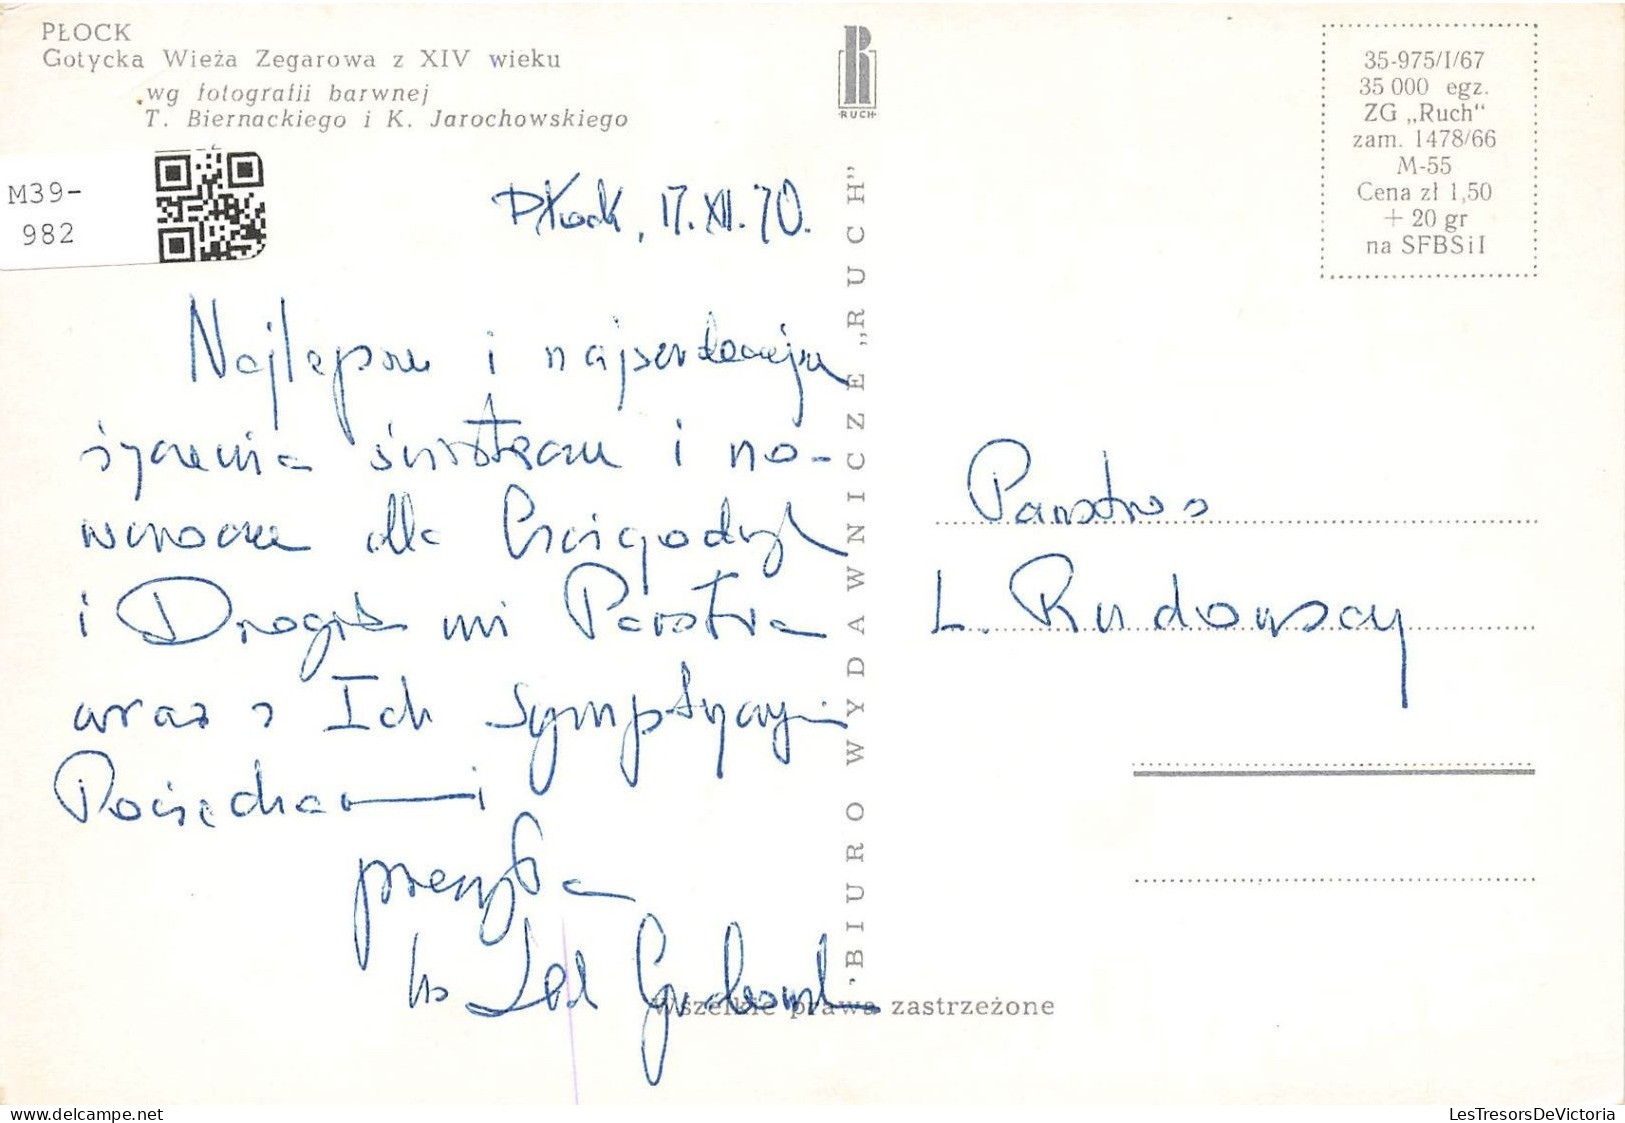 PŁOCK
Gotycka Wieża Zegarowa z XIV wieku
wg fotografii barwnej
T. Biernackiego i K. Jarochowskiego
M39-
982
RUCH
35-975/I/67
35 000 egz.
ZG „Ruch"
zam. 1478/66
M-55
Cena zł 1,50
+ 20 gr
na SFBSiI
Płock, 17.XII.70.
Najlepsze i najserdeczniejsze
życzenia świąteczne i no-
woroczne dla Czcigodnych
i Drogich mi Państwa
wraz z Ich sympatycznymi
Pociechami
przesyła
ks
BIURO WYDAWNICZE „RUCH"
Państwo
L. Rudowscy
Wszelkie prawa zastrzeżone
LesTresorsDeVictoria